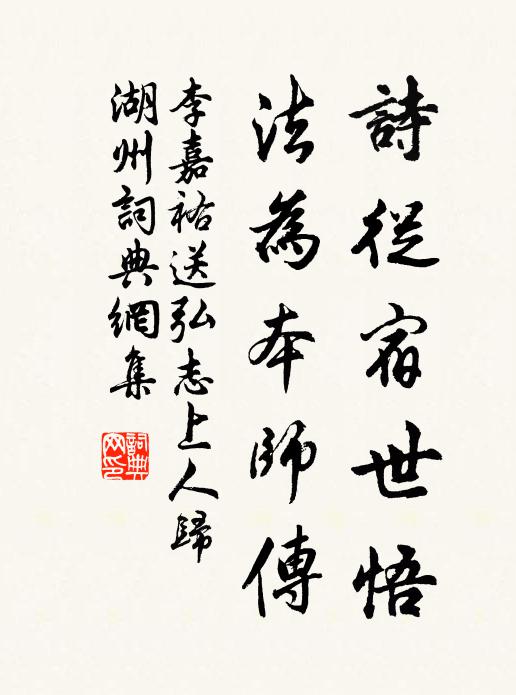 詩從宿世悟
法為本師傳
李嘉祐送弘志上人歸
湖州詞典網集
詞典網印